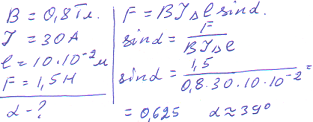 B = 0,8 Тл.
I = 30 A
l = 10·10⁻² м
F = 1,5 H
α - ?
F = BIΔl sinα.
sinα = F / BIΔl
sinα = 1,5 / 0,8·30·10·10⁻² =
= 0,625 α ≈ 39°